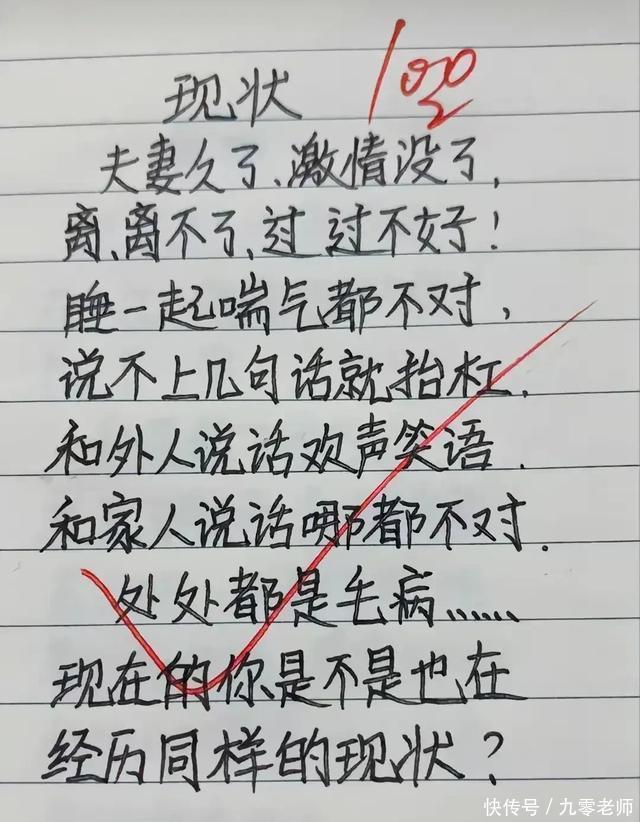 现状
100
夫妻久了、激情没了,
离、离不了,过 过不好!
睡一起喘气都不对,
说不上几句话就抬杠.
和外人说话欢声笑语.
和家人说话哪都不对.
处处都是毛病......
现在的你是不是也在
经历同样的现状?
快传号/九零老师